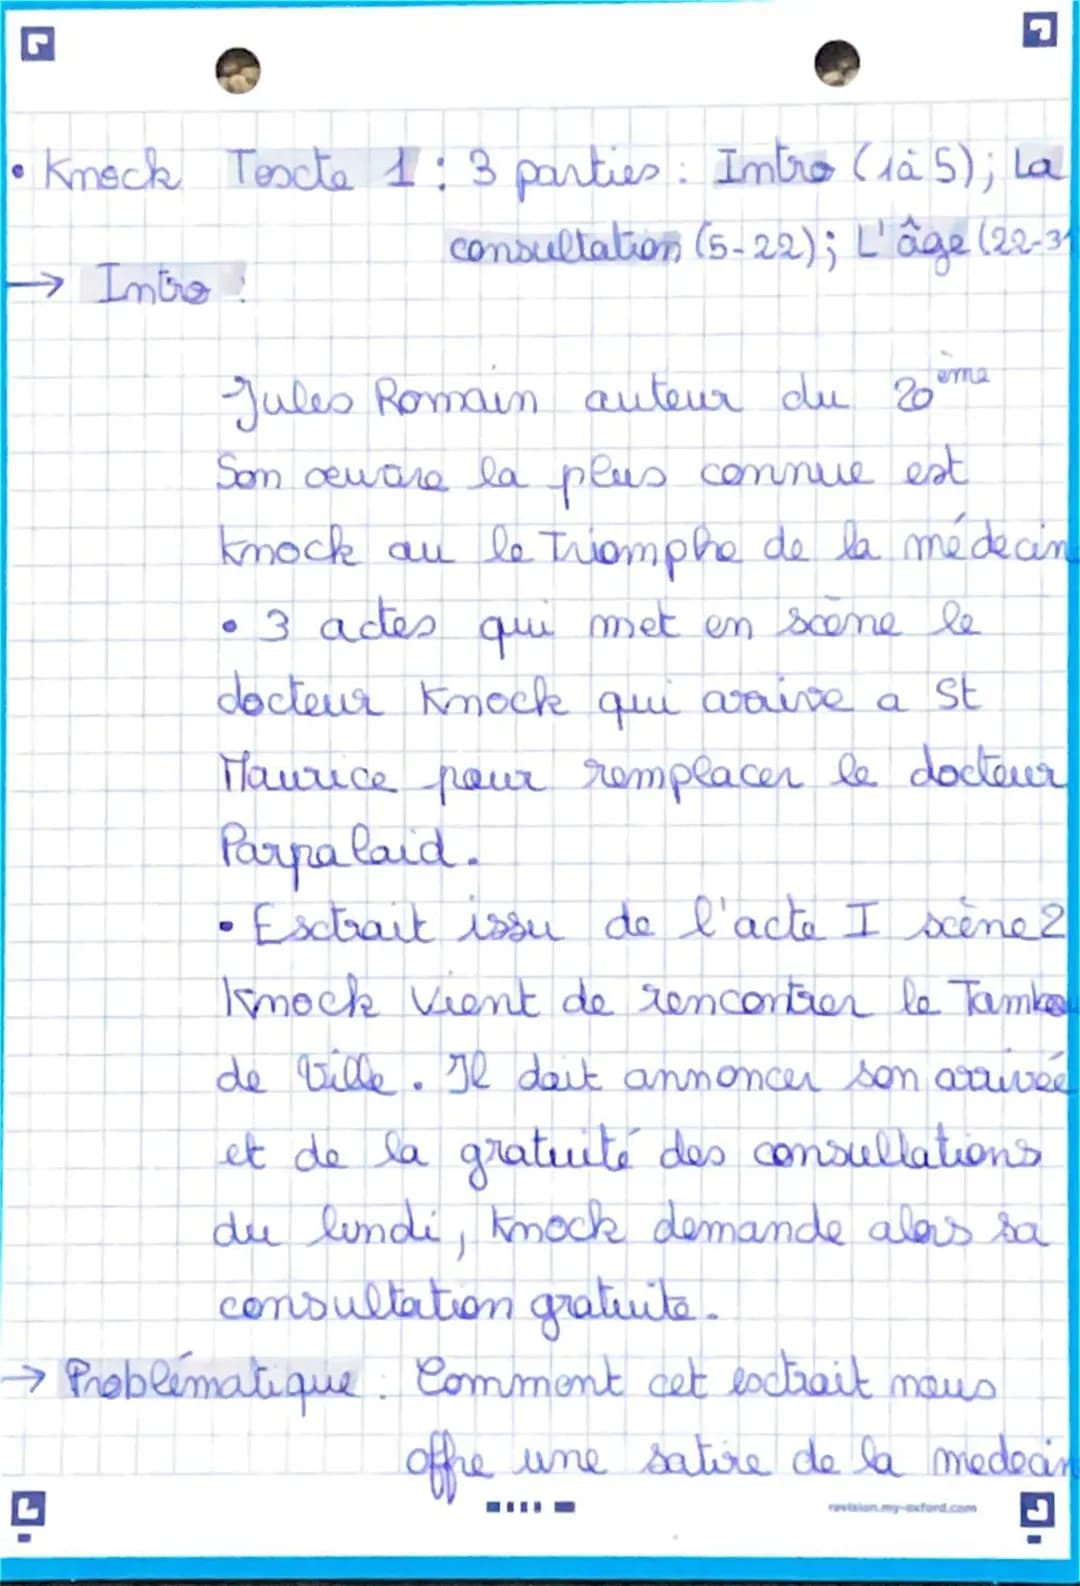 • Knock Texte 1 : 3 parties : Intro (1à5); La
consultation (5-22); L'âge (22-31
→ Intro :
Jules Romain auteur du 20 ème
Son oeuvre la plus connue est
Knock ou le Triomphe de la médecin
• 3 actes qui met en scène le
docteur Knock qui arrive a St
Maurice pour remplacer le docteur
Parpalaid.
• Extrait issu de l'acte I scène 2
Knock Vient de rencontrer le Tambou
de Ville. Il doit annoncer son arrivée
et de la gratuité des consultations
du lundi, Knock demande alors sa
consultation gratuite.
→ Problématique : Comment cet extrait nous
offre une satire de la medecin
revision.my-oxford.com